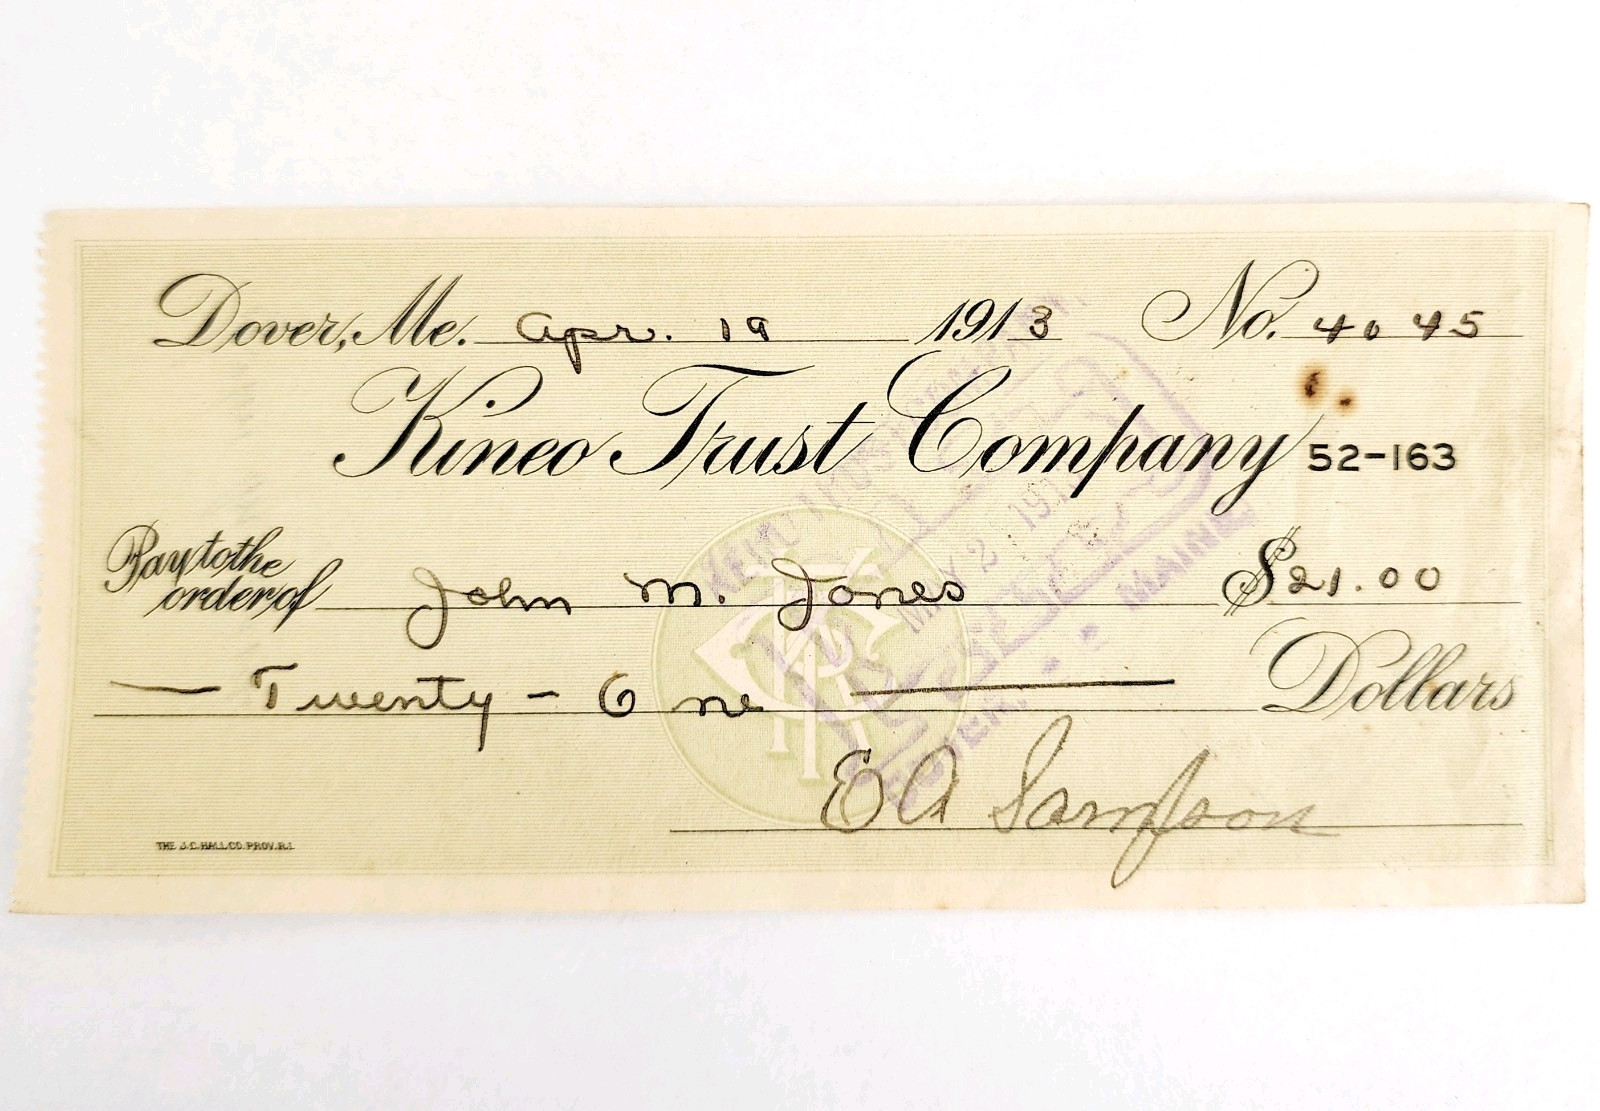 Dover, Me. Apr. 19 1913 No. 4045
Kineo Trust Company 52-163
Pay to the order of John M. Jones $21.00
— Twenty-One — Dollars
E A Sampson
THE J.C. HALL CO. PROV. R.I.
KINEO TRUST COMPANY
PAID
MAY 2 191
DOVER, MAINE